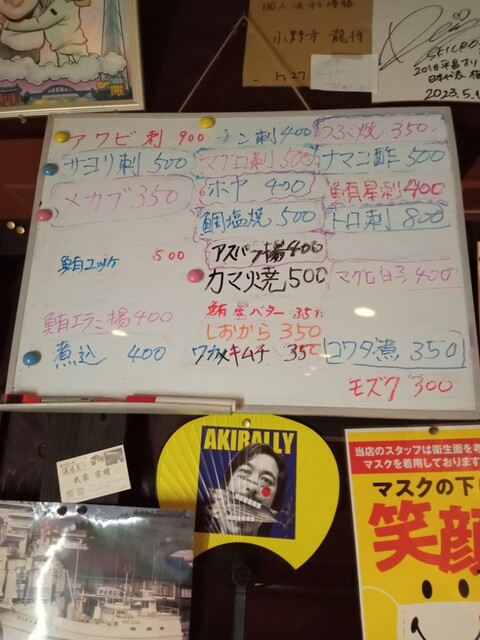 個人
優勝
小野寺 龍将
h27
2018 平昌
日本代表
2023.5.
アワビ刺 900
サヨリ刺 500
メカブ 350
鮪ユッケ 500
鮪エラミ揚 400
煮込 400
刺 400
マグロ刺 500
ホヤ 400
鯛塩焼 500
アスパラ揚 400
カマ焼 500
鮪星バター 350
しおから 350
ワカメキムチ 350
つぶ焼 350
ナマコ酢 500
鮪星刺 400
トロ刺 800
マグロ白子 400
コワタ煮 350
モズク 300
AKIRALLY
当店のスタッフは衛生面を考
マスクを着用しております
マスクの下
笑顔